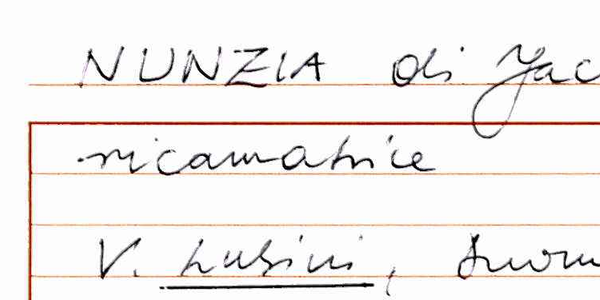 NUNZIA di Jac
ricamatrice
V. Lusini, Suor